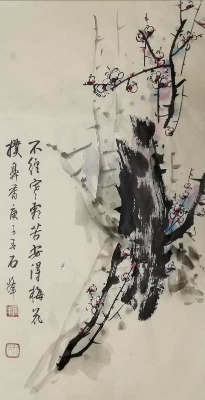 不經寒霜苦安得梅花
撲鼻香庚子年石